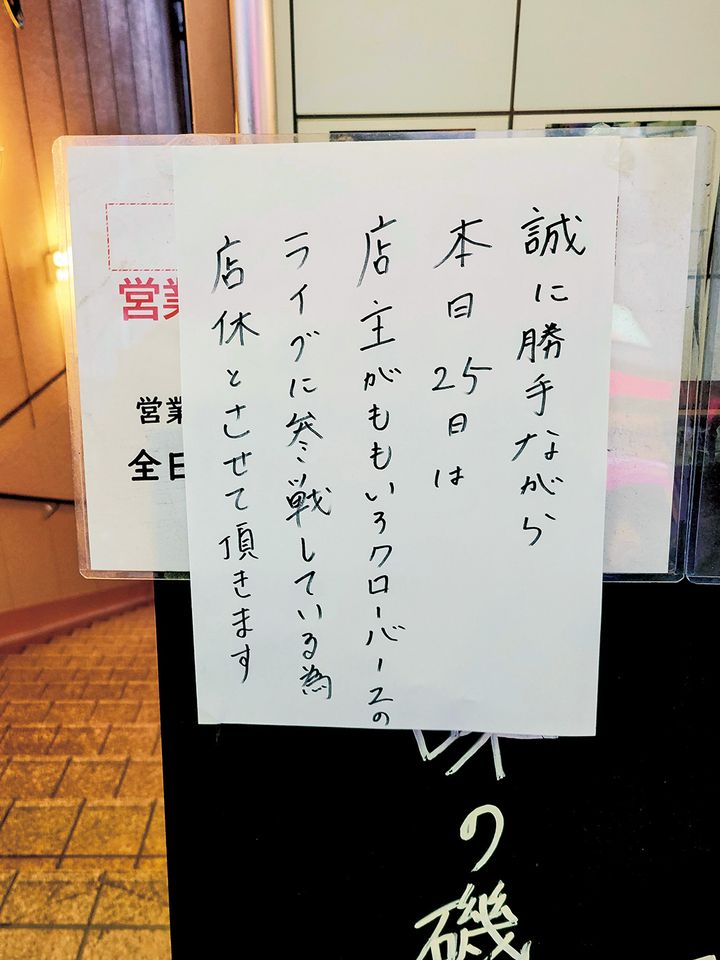 誠に勝手ながら
本日25日は
店主がももいろクローバーZの
ライブに参戦している為
店休とさせて頂きます
営業
営業
全日
の磯